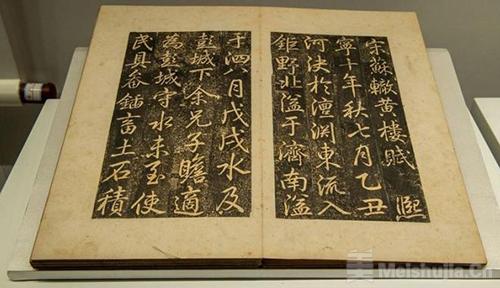 宋蘇轍黄樓賦 熙
寧十年秋七月乙丑
河決於澶淵東流入
鉅野北溢于濟南溢
于泗八月戊戌水及
彭城下余兄子瞻適
為彭城守水未至使
民具畚鍤畜土石積
美 Meishujia.Cn